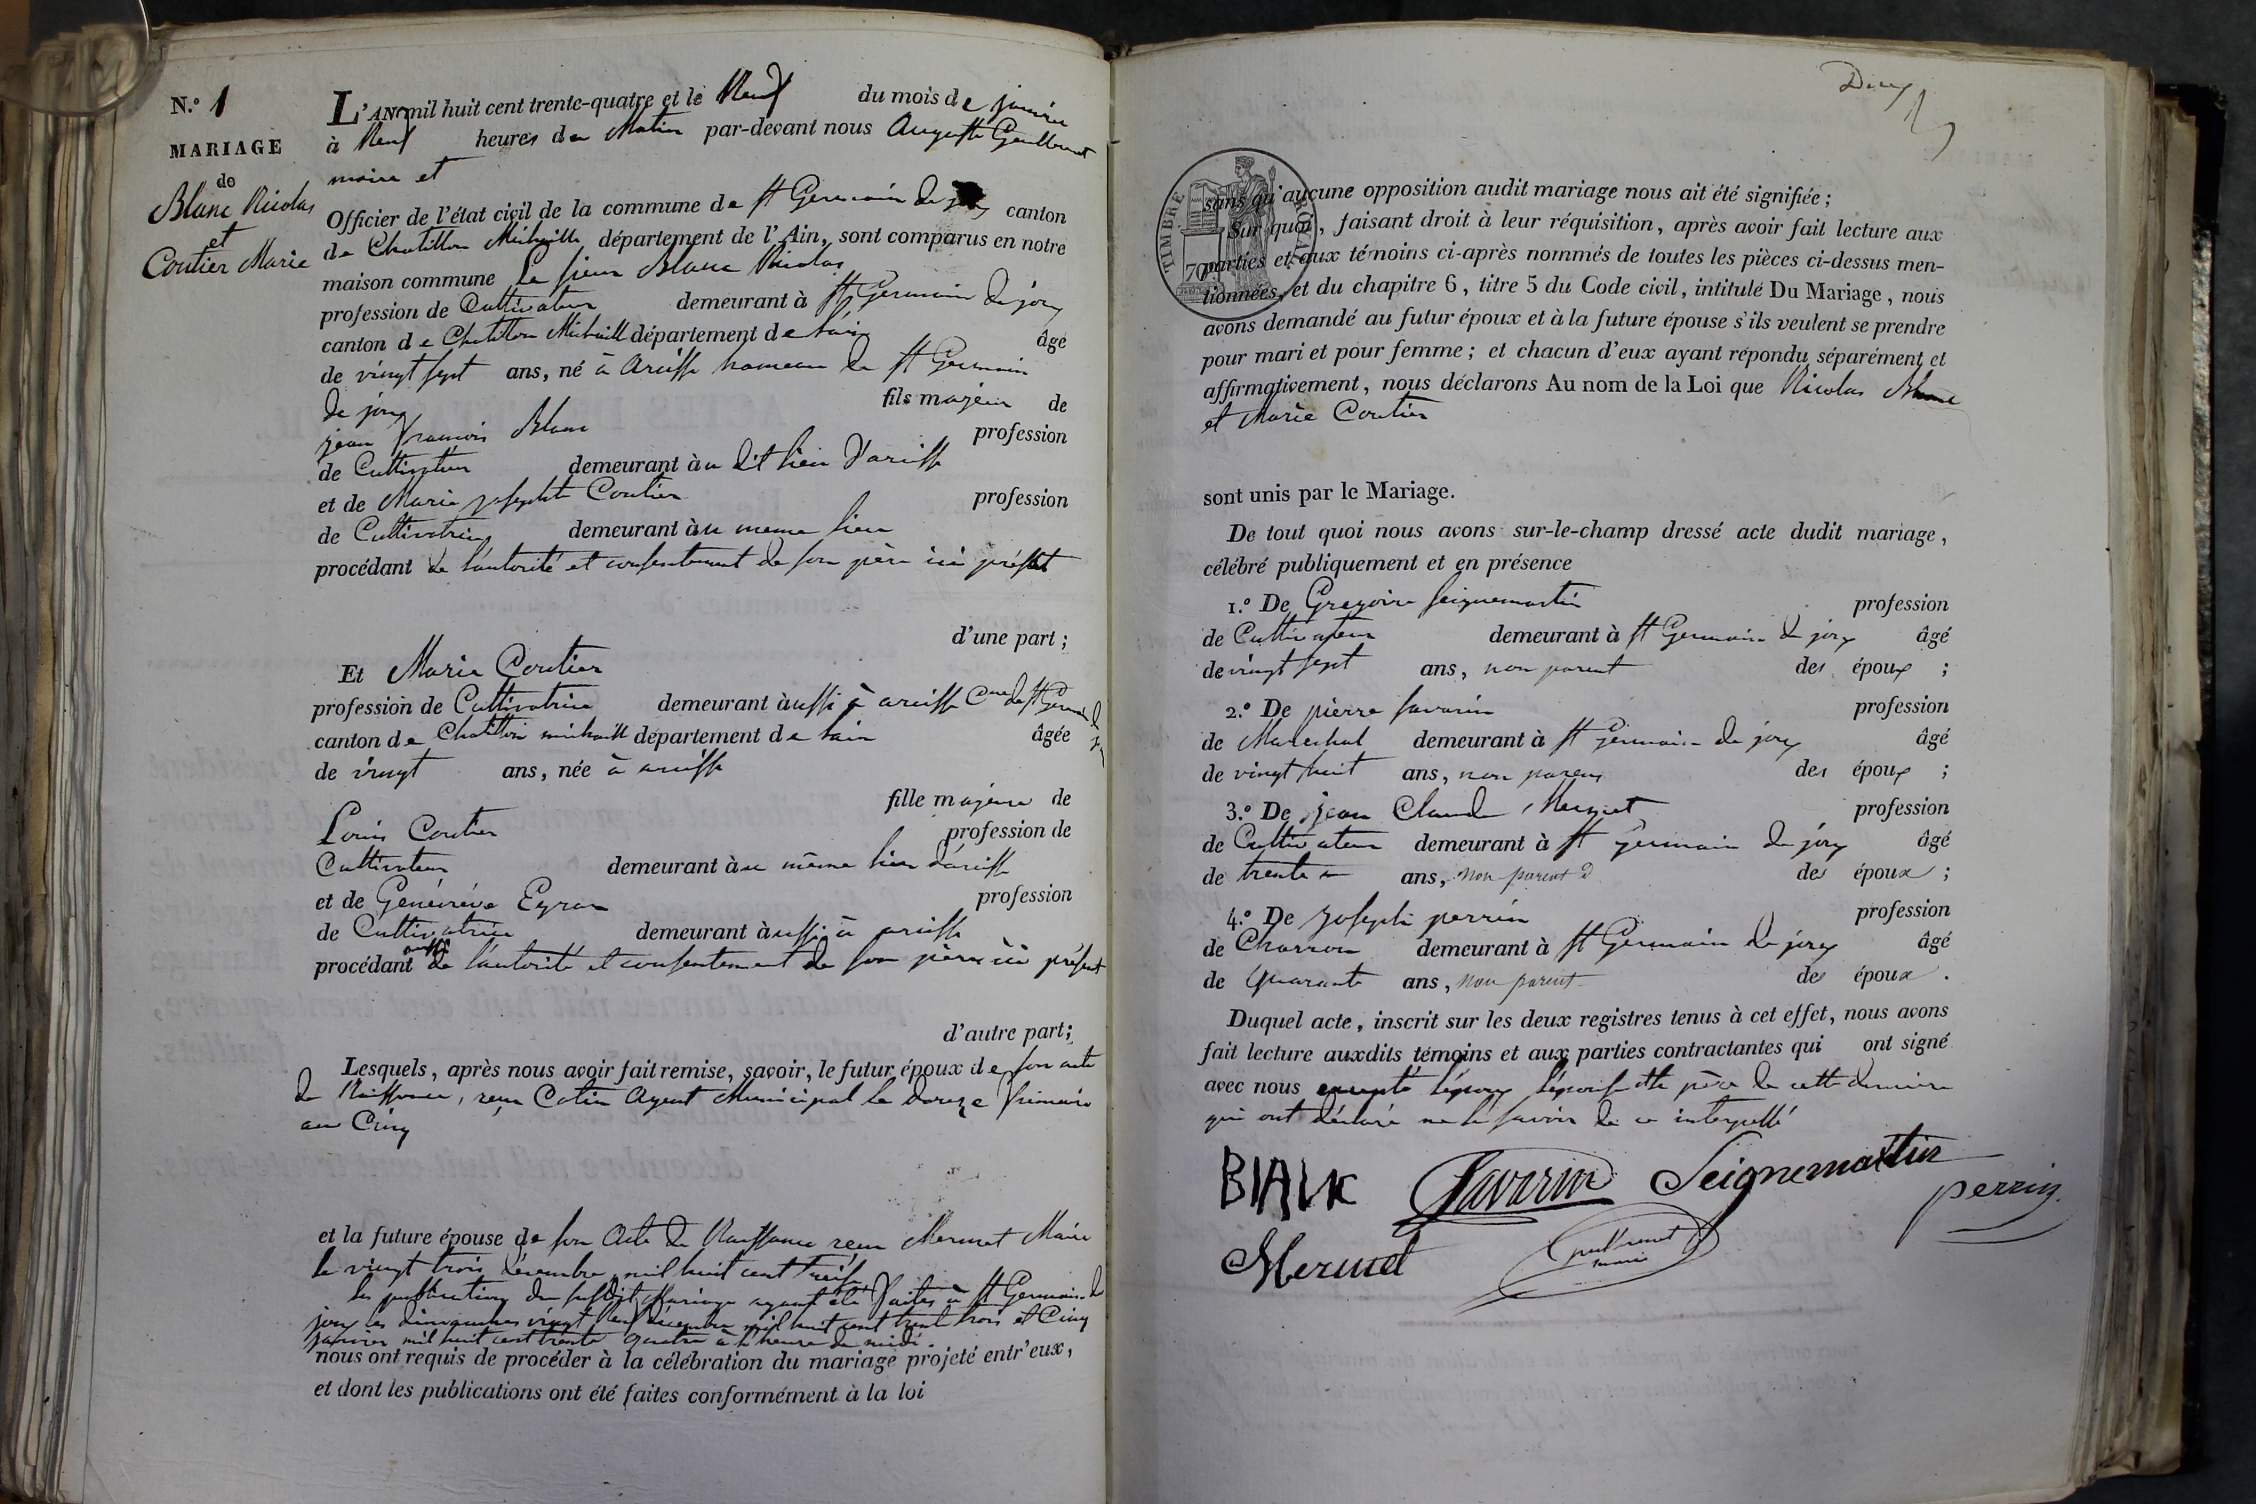 N.º 1
MARIAGE
de
Blanc Nicolas
et
Coutier Marie
L'AN mil huit cent trente-quatre et le Neuf du mois de janvier
à Neuf heures du Matin par-devant nous Auguste
maire et
Officier de l'état civil de la commune de St Germain de joux canton
de Chatillon Michaille, département de l'Ain, sont comparus en notre
maison commune Le sieur Blanc Nicolas
profession de Cultivateur demeurant à St Germain de joux
canton de Chatillon Michaille département de l'ain âgé
de vingt sept ans, né à Ariffe hameau de St Germain
de joux fils majeur de
jean françois Blanc profession
de Cultivateur demeurant àu dit lieu d'ariffe
et de Marie josephte Coutier profession
de Cultivatrice demeurant àu meme lieu
procédant de l'autorité et consentement de son père ici présent
d'une part ;
Et Marie Coutier
profession de Cultivatrice demeurant àussi à ariffe Cne de St Germain de
canton de Chatillon michaille département de l'ain âgée
de vingt ans, née à ariffe
fille majeure de
Louis Coutier profession de
Cultivateur demeurant àu même lieu d'ariffe
et de Genéviève Eyron profession
de Cultivatrice demeurant àussi à ariffe
aussi
procédant de l'autorité et consentement de son père ici présent
d'autre part ;
Lesquels, après nous avoir fait remise, savoir, le futur époux de son acte
de Naissance, reçu Colin Agent Municipal le douze frimaire
an Cinq
et la future épouse de son Acte de Naissance reçu Mermet Maire
le vingt trois décembre mil huit cent treize
les publications du susdit Mariage ayant été faites à St Germain de
joux les dimanches vingt neuf décembre mil huit cent trente trois et Cinq
janvier mil huit cent trente quatre à l'heure de midi.
nous ont requis de procéder à la célébration du mariage projeté entr'eux,
et dont les publications ont été faites conformément à la loi
Deux
TIMBRE ROYAL
70
sans qu'aucune opposition audit mariage nous ait été signifiée ;
Sur quoi, faisant droit à leur réquisition, après avoir fait lecture aux
parties et aux témoins ci-après nommés de toutes les pièces ci-dessus men-
tionnées, et du chapitre 6, titre 5 du Code civil, intitulé Du Mariage, nous
avons demandé au futur époux et à la future épouse s'ils veulent se prendre
pour mari et pour femme ; et chacun d'eux ayant répondu séparément et
affirmativement, nous déclarons Au nom de la Loi que Nicolas Blanc
et Marie Coutier
sont unis par le Mariage.
De tout quoi nous avons sur-le-champ dressé acte dudit mariage,
célébré publiquement et en présence
1.º De Gregoire Seignemartin profession
de Cultivateur demeurant à St Germain de joux âgé
de vingt sept ans, non parent des époux ;
2.º De pierre Savarin profession
de Marechal demeurant à St Germain de joux âgé
de vingt huit ans, non parent des époux ;
3.º De jean Claude Mermet profession
de Cultivateur demeurant à St Germain de joux âgé
de trente ans, non parent des époux ;
4.º De joseph perrin profession
de Charron demeurant à St Germain de joux âgé
de quarante ans, non parent des époux .
Duquel acte, inscrit sur les deux registres tenus à cet effet, nous avons
fait lecture auxdits témoins et aux parties contractantes qui ont signé
avec nous excepté l'époux l'épouse et le père de cette derniere
qui ont déclaré ne le savoir de ce interpellé
BlANC Savarin Seignemartin
perrin
Mermet
maire